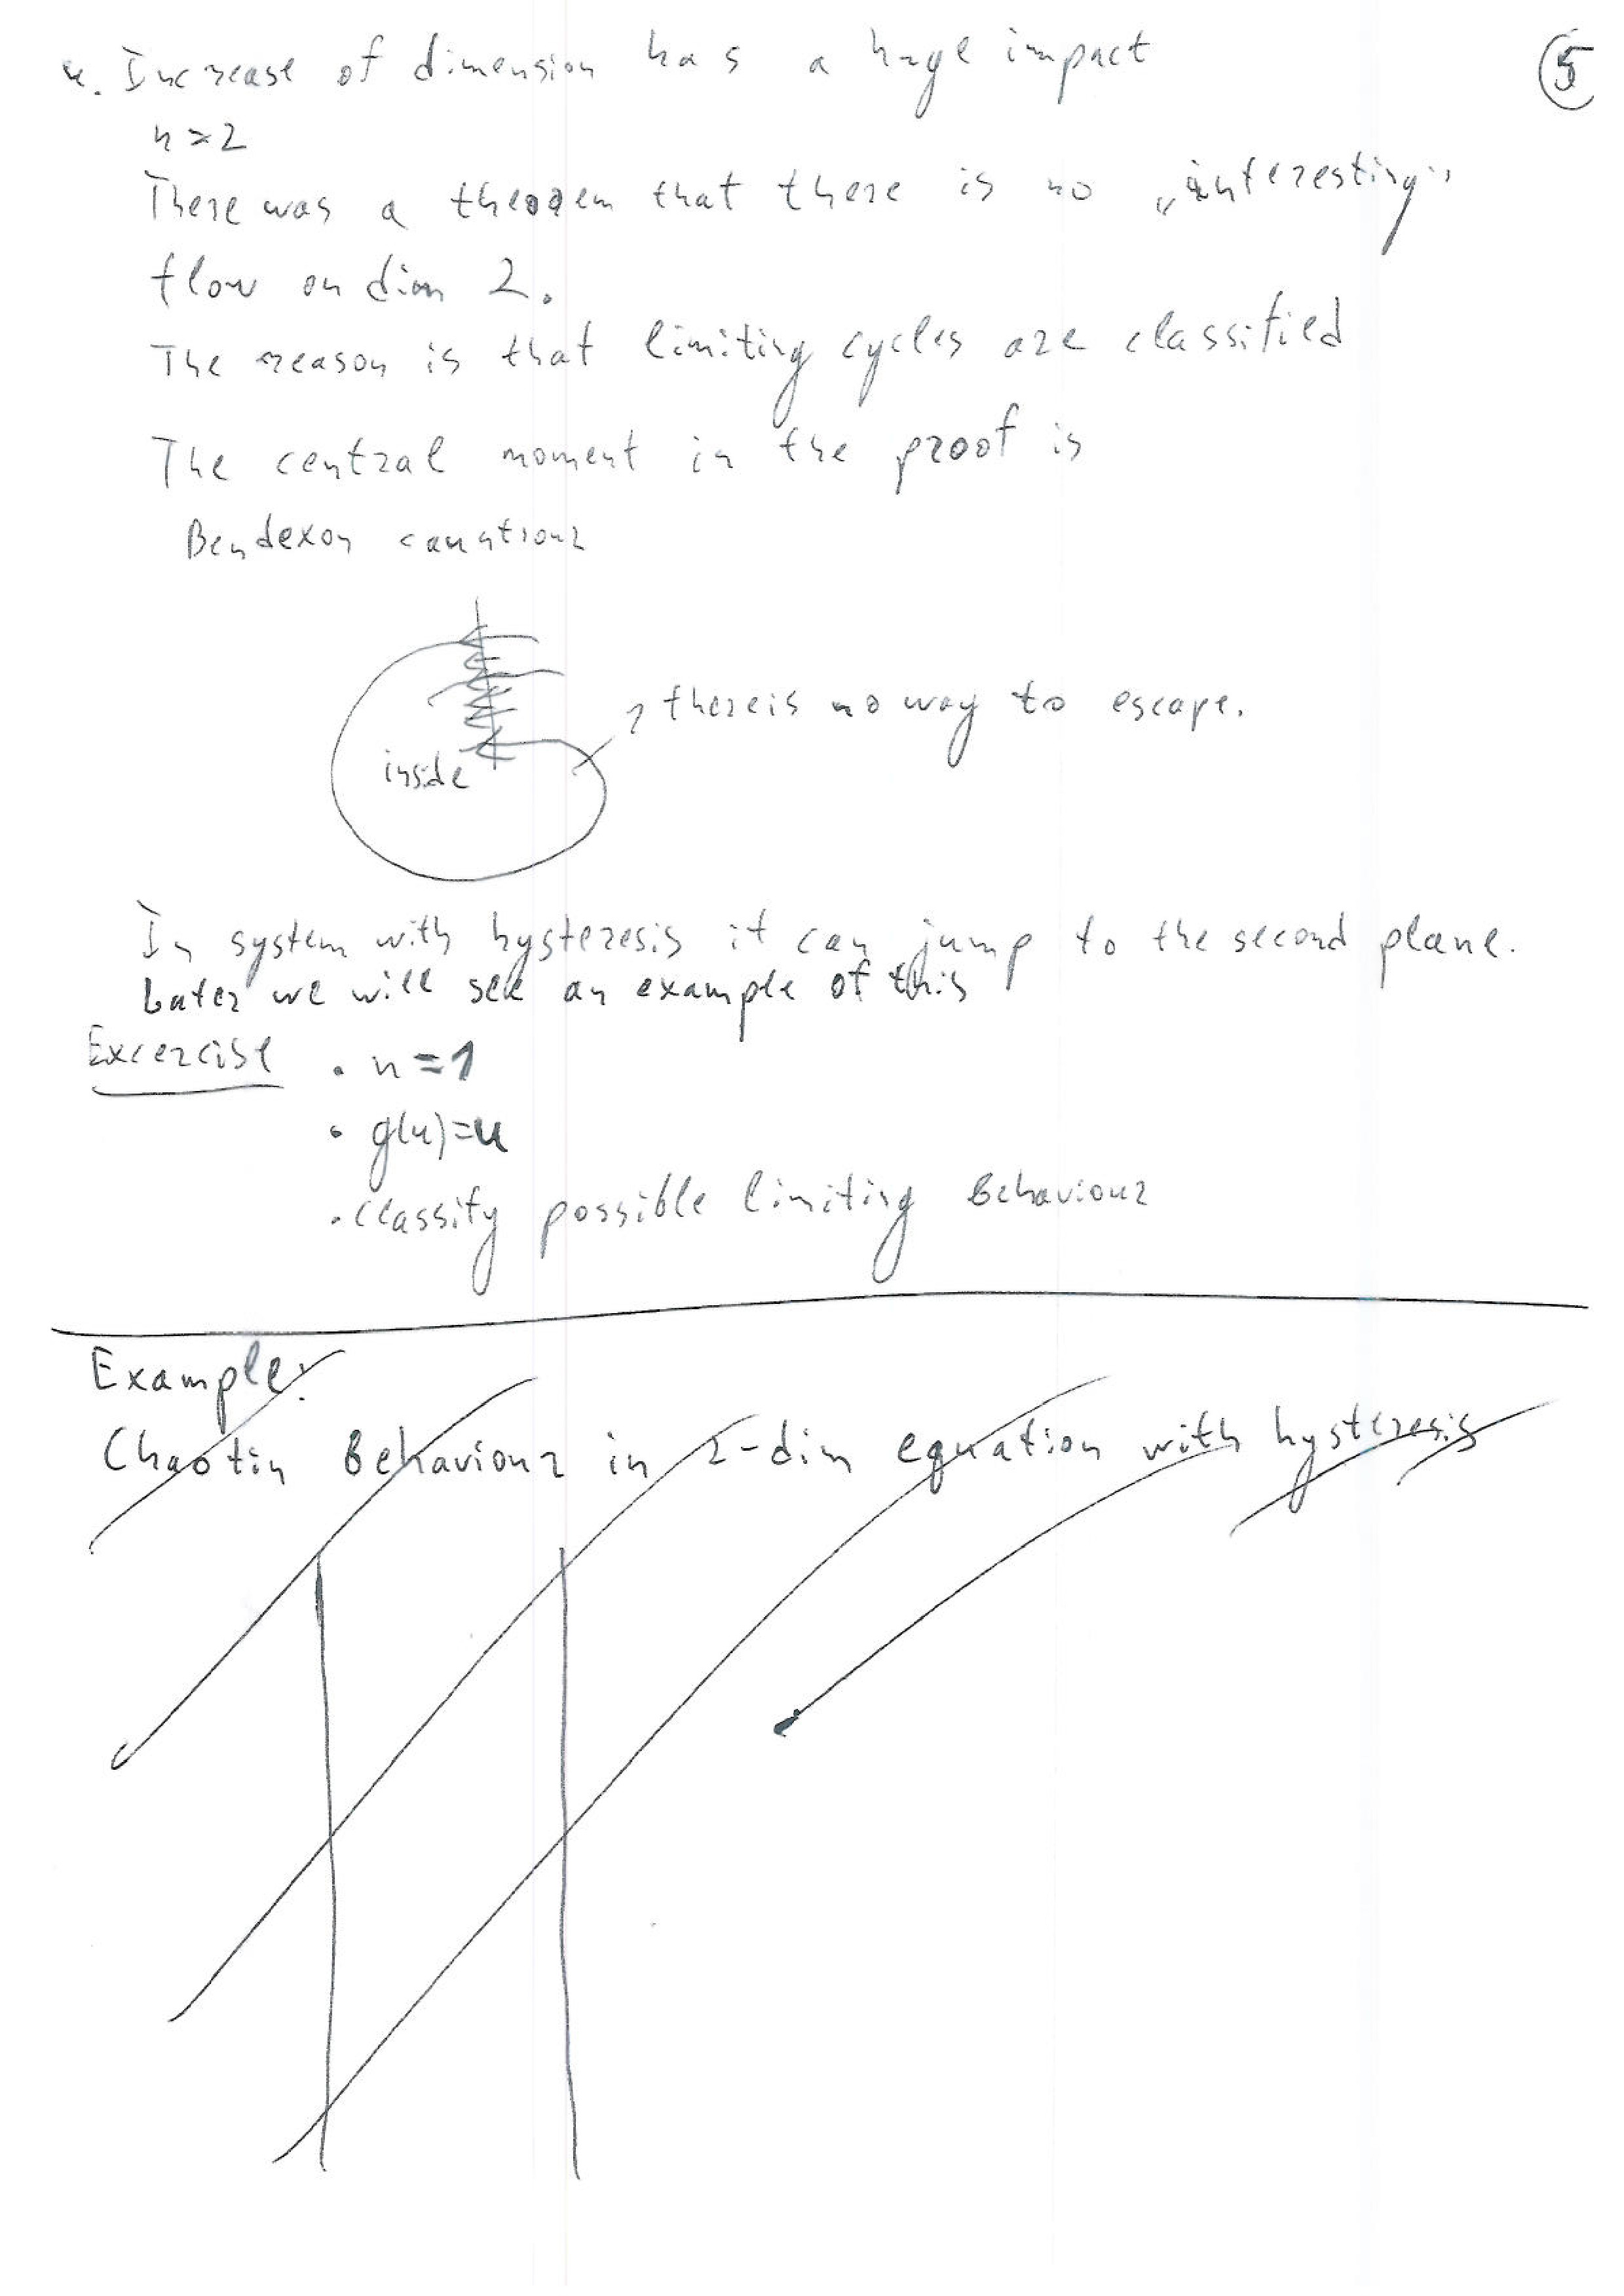 4. Increase of dimension has a huge impact
5
n=2
There was a theorem that there is no „interesting"
flow on dim 2.
The reason is that limiting cycles are classified
The central moment in the proof is
Bendexon countour
there is no way to escape.
inside
In system with hysteresis it can jump to the second plane.
Later we will see an example of this
Excercise
• n=1
• g(u)=u
• classify possible limiting Behaviour
Example:
Chaotin Behaviour in 2-dim equation with hysteresis